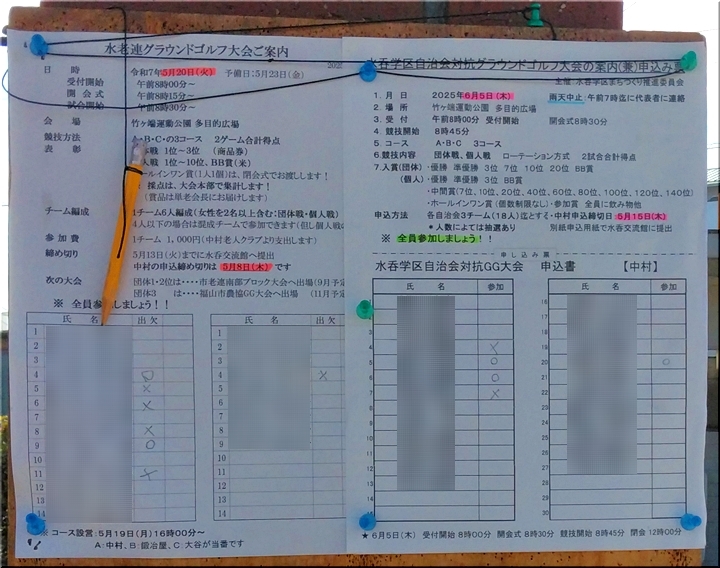 水老連グラウンドゴルフ大会ご案内
日　時　令和7年5月20日(火)　予備日:5月23日(金)
受付開始　午前8時00分～
開会式　午前8時15分～
試合開始　午前8時30分～
会　場　竹ヶ端運動公園 多目的広場
競技方法　A・B・Cの3コース　2ゲーム合計得点
表　彰　戦 1位～3位　(商品券)
人戦 1位～10位、BB賞(米)
ールインワン賞(1人1個)は、閉会式でお渡しします!
・採点は、大会本部で集計します!
(賞品は単老会長にお届けします)
チーム編成　1チーム6人編成(女性を2名以上含む:団体戦・個人戦)
4人以下の場合は混成チームで参加できます(但し個人
参加費　1チーム 1,000円(中村老人クラブより支出します)
締め切り　5月13日(火)までに水呑交流館へ提出
中村の申込締め切りは 5月8日(木) です
次の大会　団体1・2位は・・・・市老連南部ブロック大会へ出場(9月予定
団体3　は・・・・福山市農協GG大会へ出場　(11月予
※ 全員参加しましょう!!
氏　名　出欠　氏　名　出欠
1　1
2　2
3　3
4　○　4　×
5　×　5
6　×　6
7　7
8　×　8
9　○　9
10　10
11　×　11
12　12
13　13
14　14
※ コース設営:5月19日(月)16時00分～
A:中村、B:鍛冶屋、C:大谷が当番です
水呑学区自治会対抗グラウンドゴルフ大会の案内(兼)申込み
主催 水呑学区まちづくり推進委員会
1. 月　日　2025年6月5日(木)　雨天中止、午前7時迄に代表者に連絡
2. 場　所　竹ヶ端運動公園 多目的広場
3. 受　付　午前8時00分 受付開始　開会式8時30分
4. 競技開始　8時45分
5. コース　A・B・C　3コース
6. 競技内容　団体戦、個人戦　ローテーション方式　2試合合計得点
7. 入賞(団体)・優勝 準優勝 3位 7位 10位 20位 BB賞
(個人)・優勝 準優勝 3位 BB賞
・中間賞(7位、10位、20位、40位、60位、80位、100位、120位、140位)
・ホールインワン賞(個数制限なし)・参加賞 全員に飲み物他
申込方法　各自治会3チーム(18人)迄とする・中村申込締切日 5月15日(木)
*人数によっては抽選あり　別紙申込用紙で水呑交流館に提出
※ 全員参加しましょう!
申し込み票
水呑学区自治会対抗GG大会　申込書　【中村】
氏　名　参加　氏　名　参加
1　16
2　17
3　18
4　×　19
5　○　20　○
6　○　21
7　×　22
8　23
9　24
10　25
11　26
12　27
13　28
14　29
30
★ 6月5日(木)　受付開始 8時00分　開会式 8時30分　競技開始 8時45分　閉会 12時00分